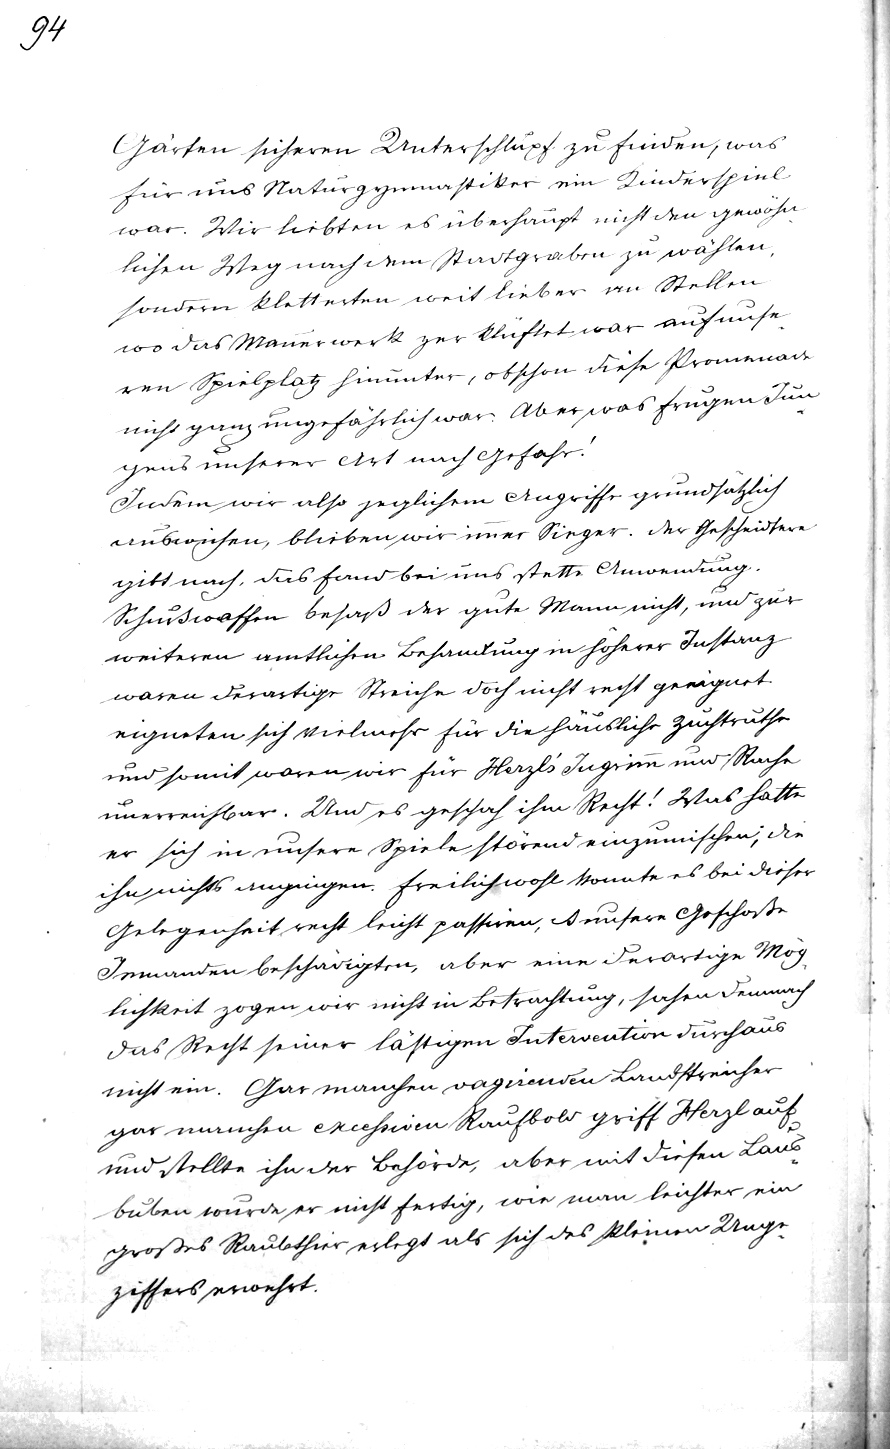 94
Gärten sicheren Unterschlupf zu finden, was
für uns Naturgymnastiker ein Kinderspiel
war. Wir liebten es überhaupt nicht den gewöhn-
lichen Weg nach dem Stadtgraben zu wählen,
sondern kletterten weit lieber an Stellen
wo das Mauerwerk zerklüftet war auf unse-
ren Spielplatz hinunter, obschon diese Promenade
nicht ganz ungefährlich war. Aber was frugen Jun-
gens unserer Art nach Gefahr!
Indem wir also jeglichem Angriffe grundsätzlich
auswichen, blieben wir im̅er Sieger. Der Gescheidtere
gibt nach, das fand bei uns stette Anwendung.
Schußwaffen besaß der gute Mann nicht, und zur
weiteren amtlichen Behandlung in höherer Instanz
waren derartige Streiche doch nicht recht geeignet
eigneten sich vielmehr für die häusliche Zuchtruthe
und somit waren wir für Herzl's Ingrim̅ und Rache
unerreichbar. Und es geschah ihm Recht! Was hatte
er sich in unsere Spiele störend einzumischen, die
ihn nichts angingen. Freilich wohl konnte es bei dieser
Gelegenheit recht leicht passiren, unsere Geschoße
Jemanden beschädigten, aber eine derartige Mög-
lichkeit zogen wir nicht in Betrachtung, sahen demnach
das Recht seiner lästigen Intervention durchaus
nicht ein. Gar manchen vagirenden Landstreicher
gar manchen excessiven Raufbold griff Herzl auf
und stellte ihn der Behörde, aber mit diesen Laus-
buben wurde er nicht fertig, wie man leichter ein
großes Raubthier erlegt als sich des kleinen Unge-
ziffers erwehrt.